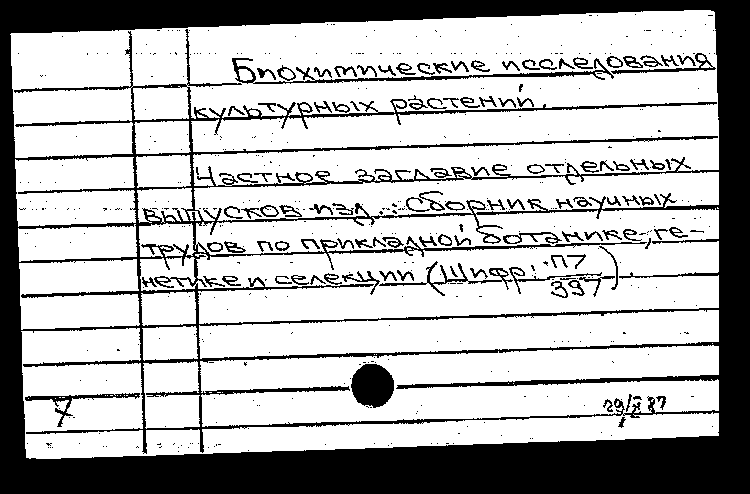 Биохимические исследования
культурных растений.
Частное заглавие отдельных
выпусков изд.: Сборник научных
трудов по прикладной ботанике, ге-
нетике и селекции (Шифр: П7/397).
7
29/X 87